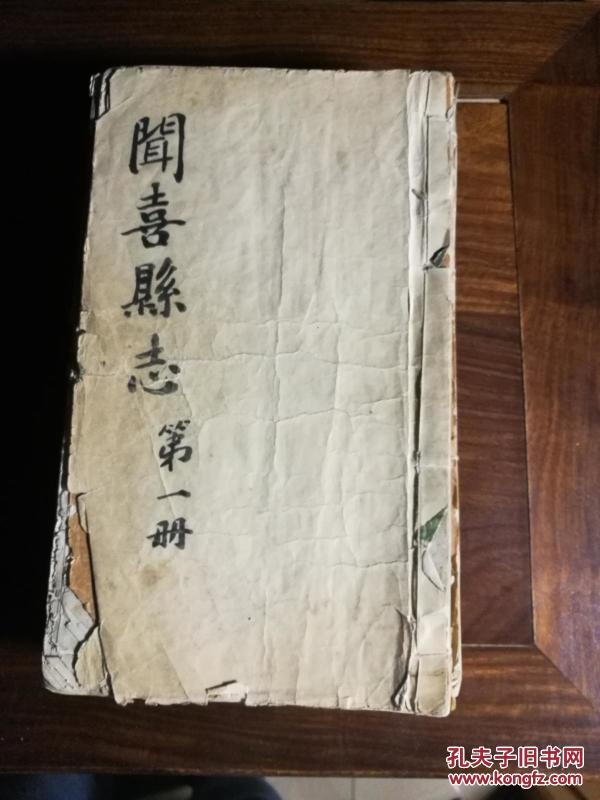 聞喜縣志
第一册
孔夫子旧书网
www.kongfz.com